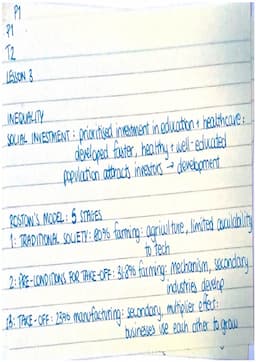 P1
P1
T2
LESSON 3
INEQUALITY
SOCIAL INVESTMENT : prioritised investment in education + healthcare :
developed faster, healthy + well-educated
population attracts investors → development
ROSTOW'S MODEL : 5 STAGES
1: TRADITIONAL SOCIETY : 80% farming : agriculture, limited availability
to tech
2: PRE-CONDITIONS FOR TAKE-OFF : farming : mechanism, secondary
industries develop
TAKE-OFF : manufacturing : secondary, multiplier effect :
businesses use each other to grow